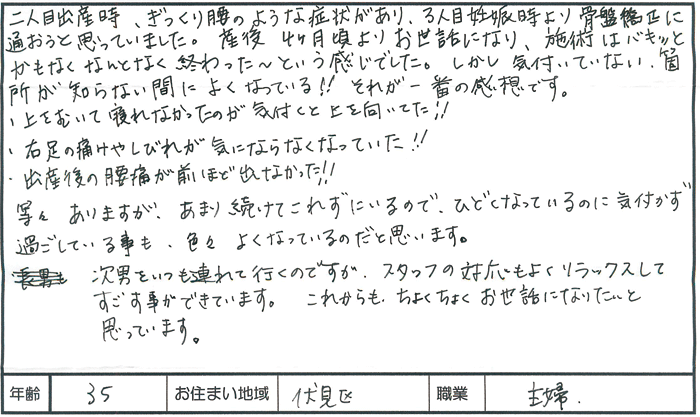 二人目出産時、ぎっくり腰のような症状があり、3人目妊娠時より骨盤矯正に
通おうと思っていました。産後4ヶ月頃よりお世話になり、施術はバキッと
かもなくなんとなく終わった〜という感じでした。しかし気付いていない箇
所が知らない間によくなっている!!それが一番の感想です。
・上をむいて寝れなかったのが気付くと上を向いてた!!
・右足の痛みやしびれが気にならなくなっていた!!
・出産後の腰痛が前ほど出なかった!!
等々ありますが、あまり続けてこれずにいるので、ひどくなっているのに気付かず
過ごしている事も、色々よくなっているのだと思います。
次男をいつも連れて行くのですが、スタッフの対応もよくリラックスして
すごす事ができています。これからも、ちょくちょくお世話になりたいと
思っています。
年齢 35 お住まい地域 伏見区 職業 主婦.